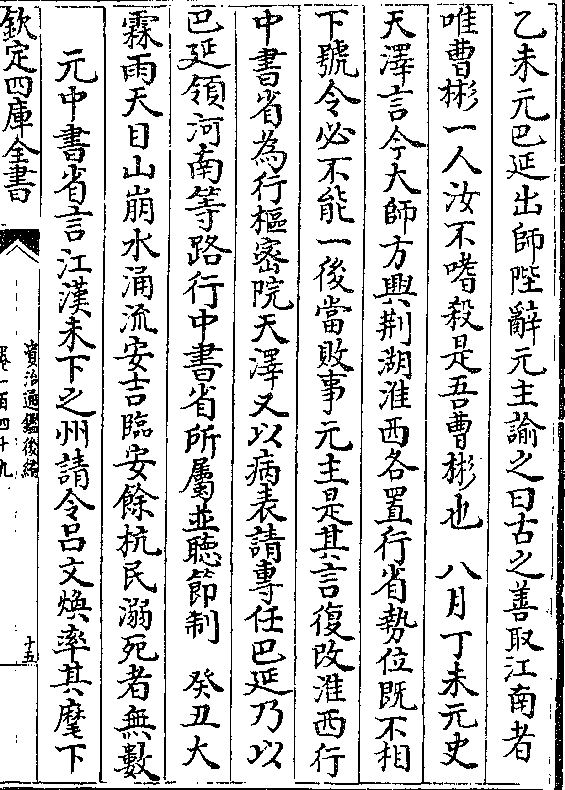 乙未元巴延出師陛辭元主諭之曰古之善取江南者
唯曹彬一人汝不嗜殺是吾曹彬也　八月丁未元史
天澤言今大師方興荆湖淮西各置行省勢位既不相
下號令必不能一後當敗事元主是其言復改淮西行
中書省為行樞密院天澤又以病表請專任巴延乃以
巴延領河南等路行中書省所屬並聽節制　癸丑大
霖雨天目山崩水涌流安吉臨安餘杭民溺死者無數
元中書省言江漢未下之州請令呂文煥率其麾下
欽定四庫全書
資治通鑑後編
卷一百四十九
十五